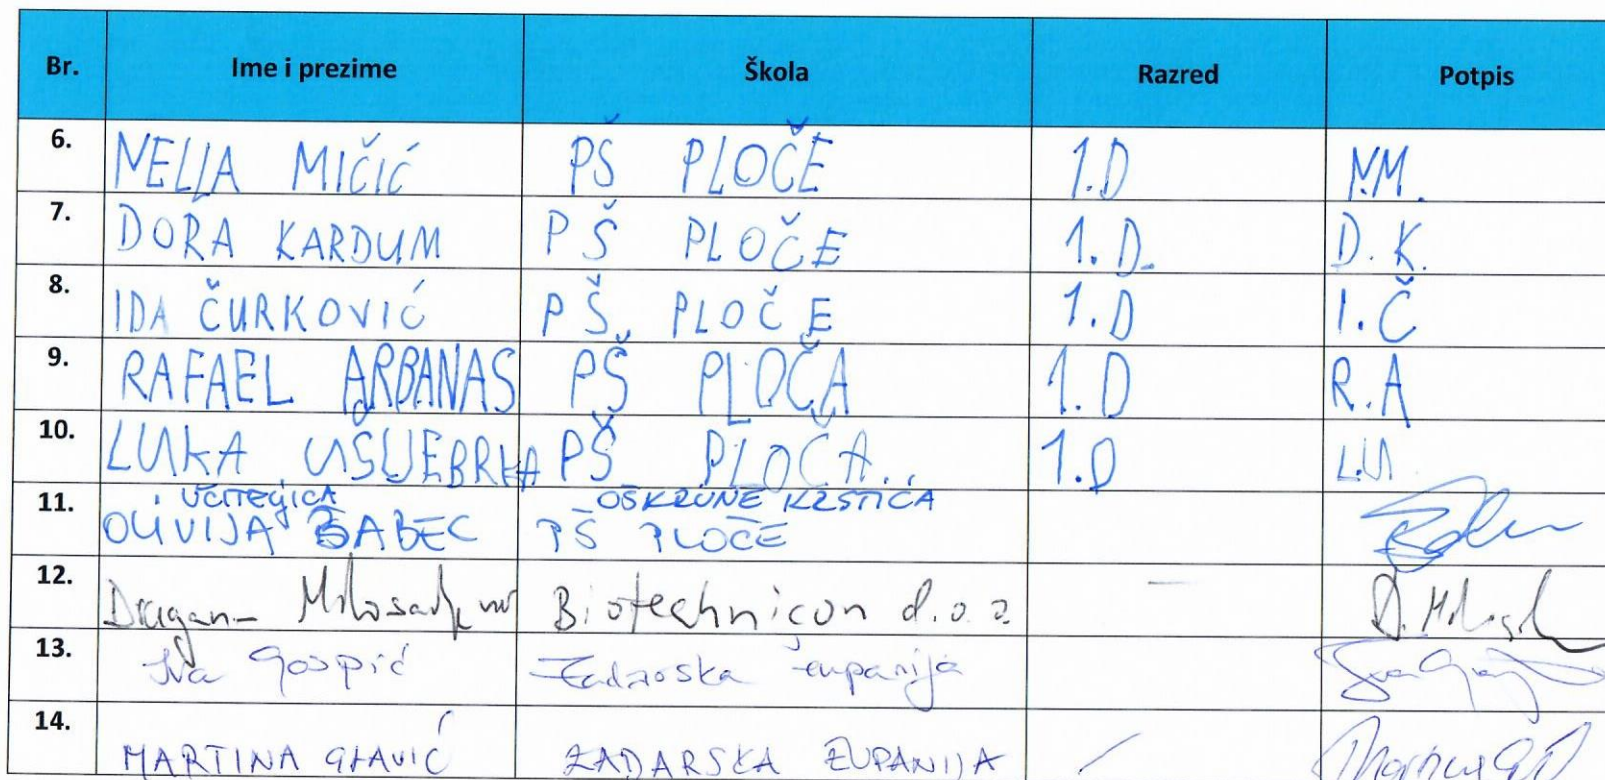 Br. Ime i prezime Škola Razred Potpis
6. NELLA MIČIĆ PŠ PLOČE 1.D N.M.
7. DORA KARDUM PŠ PLOČE 1.D. D.K.
8. IDA ČURKOVIĆ PŠ PLOČE 1.D I.Č
9. RAFAEL ARBANAS PŠ PLOČA 1.D R.A
10. LUKA USLJEBRKA PŠ PLOČA.. 1.D L.U.
UČITELJICA OŠ KRUNE KRSTIĆA
11. OLIVIJA BABEC PŠ PLOČE
12. Dragan Biotechnicon d.o.o – D.
13. Iva Gospić Zadarska županija
14. MARTINA GLAVIĆ ZADARSKA ŽUPANIJA /